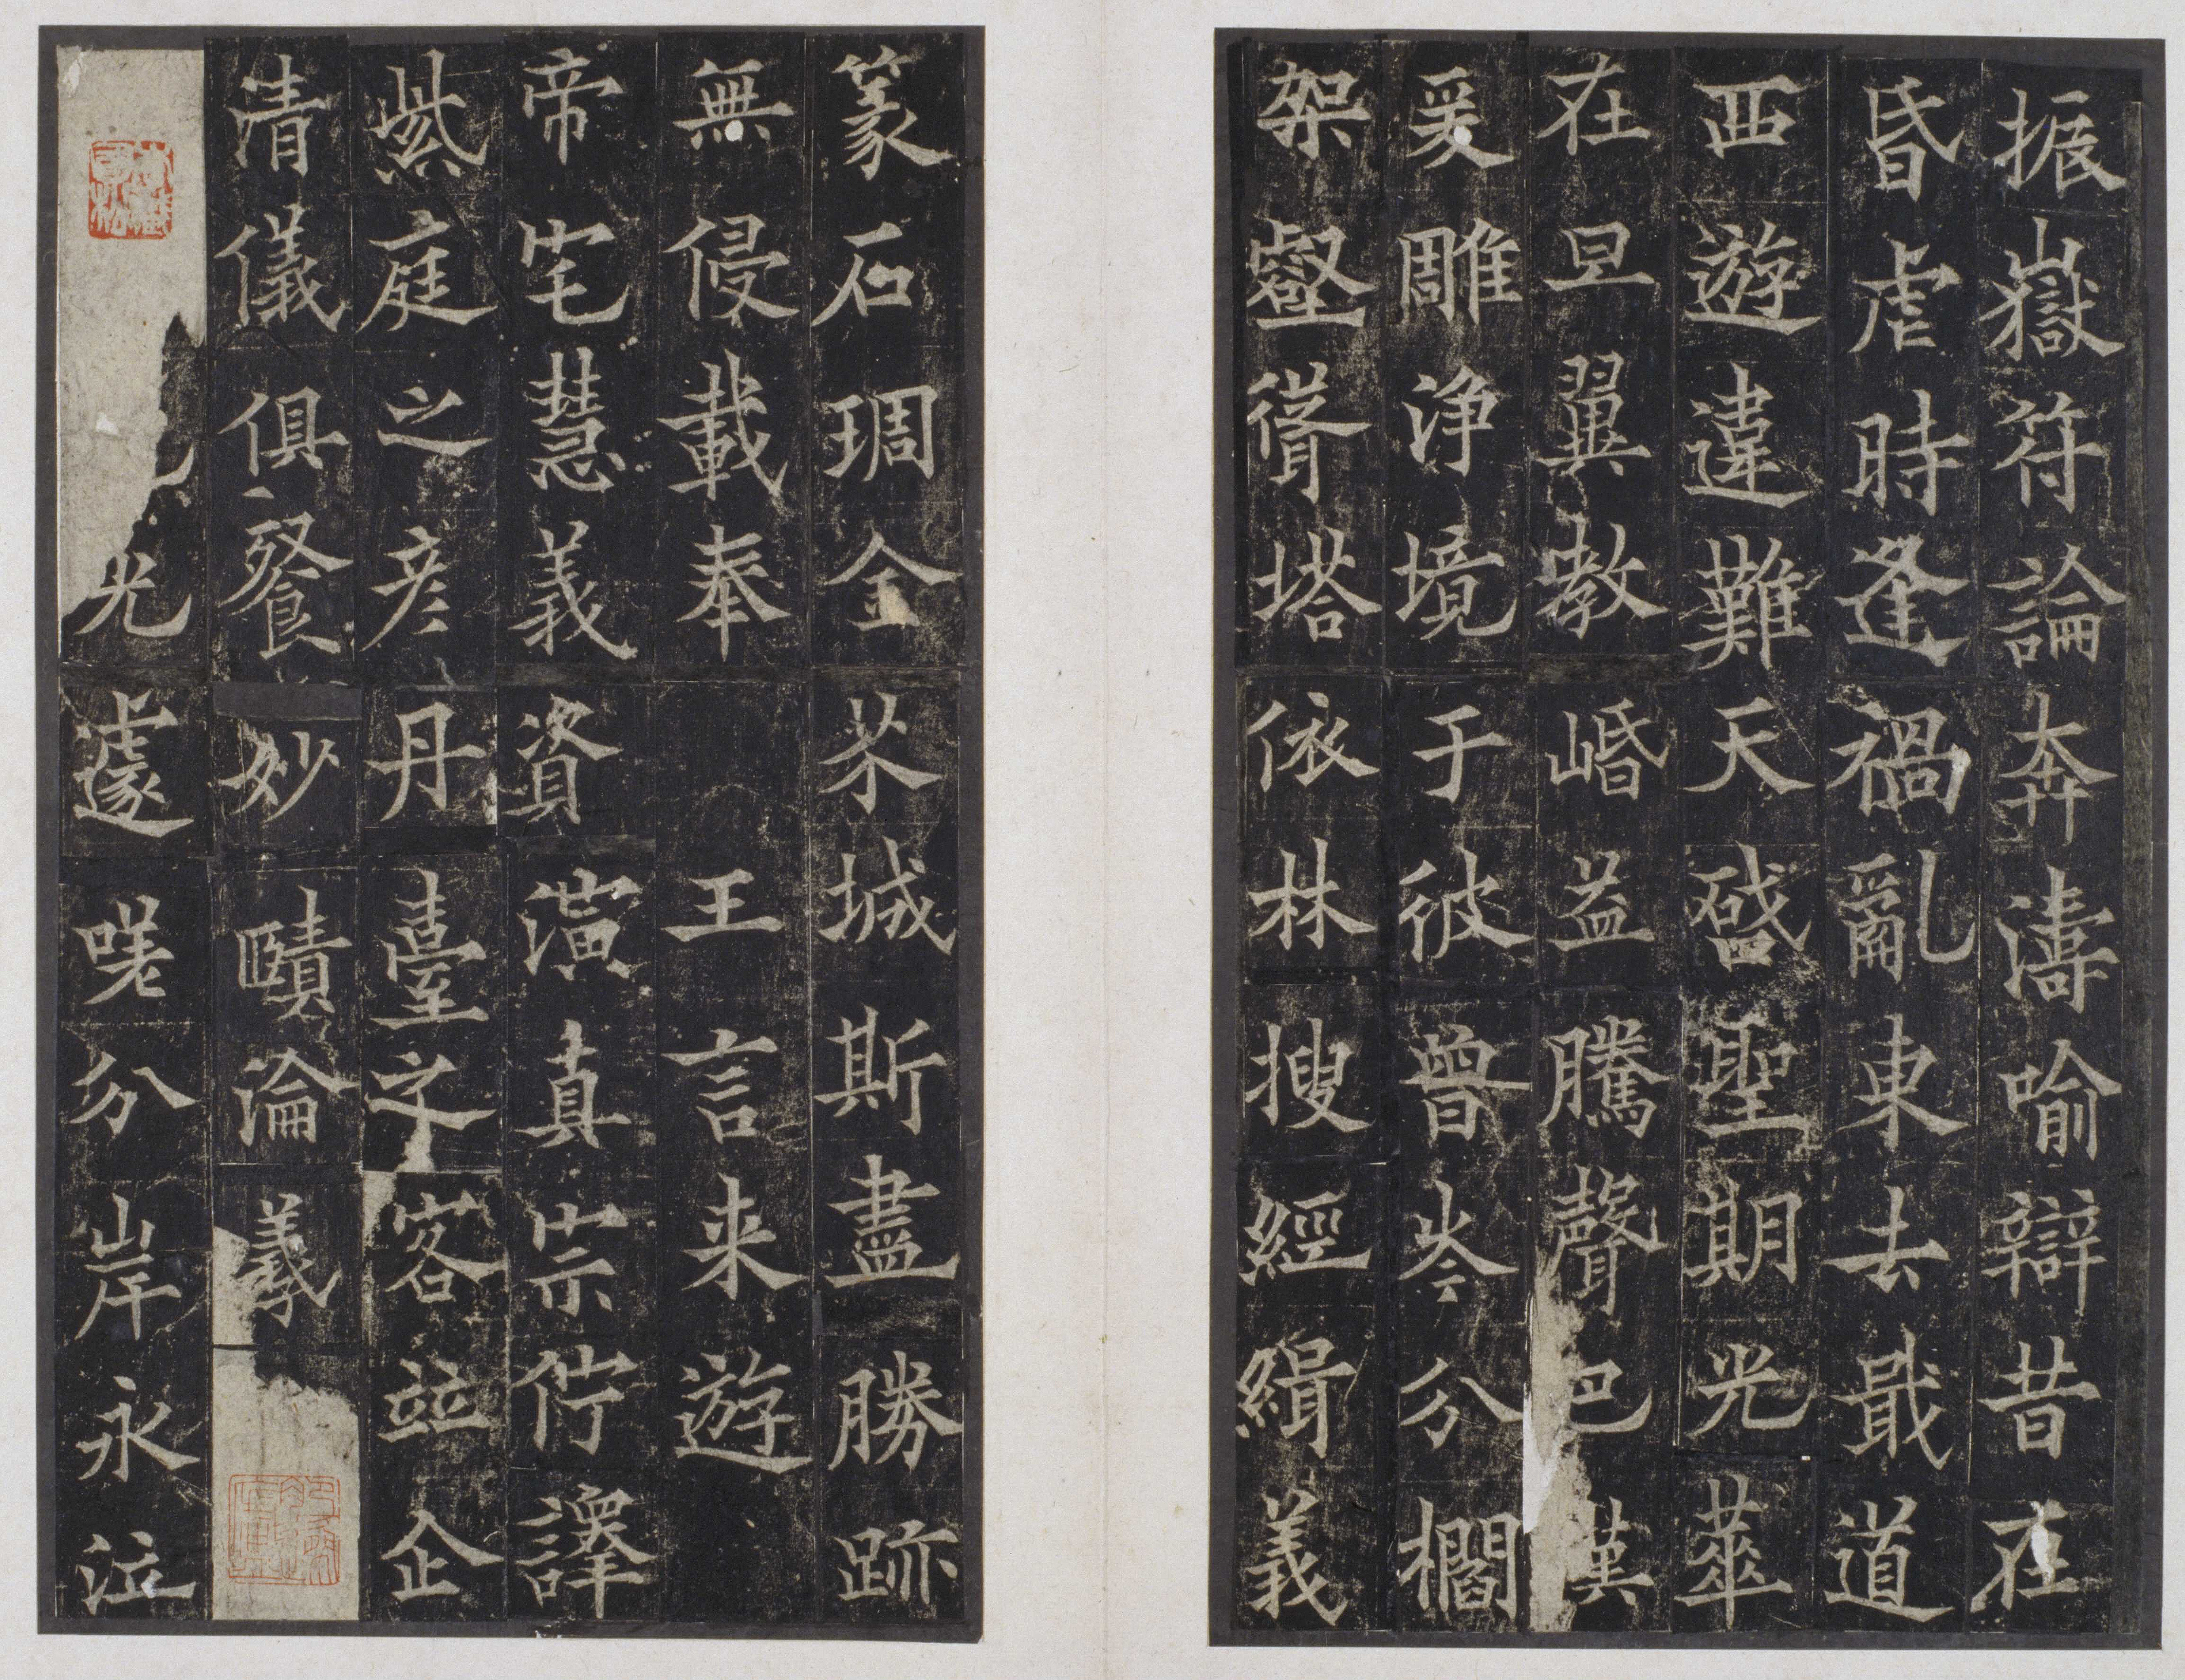 振嶽符論奔濤喻辯昔在
昏虐時逢禍亂東去戢道
西遊違難天啓聖期光華
在旦翼教㟭益騰聲巴漢
爰雕淨境于彼曾岑分櫩
架壑聳塔依林搜經緝義
篆石琱金芥城斯盡勝跡
無侵載奉 王言来遊
帝宅慧義資演真宗佇譯
紫庭之彦丹臺之客並企
清儀俱餐妙賾淪羲
光遽嗟分岸永泣